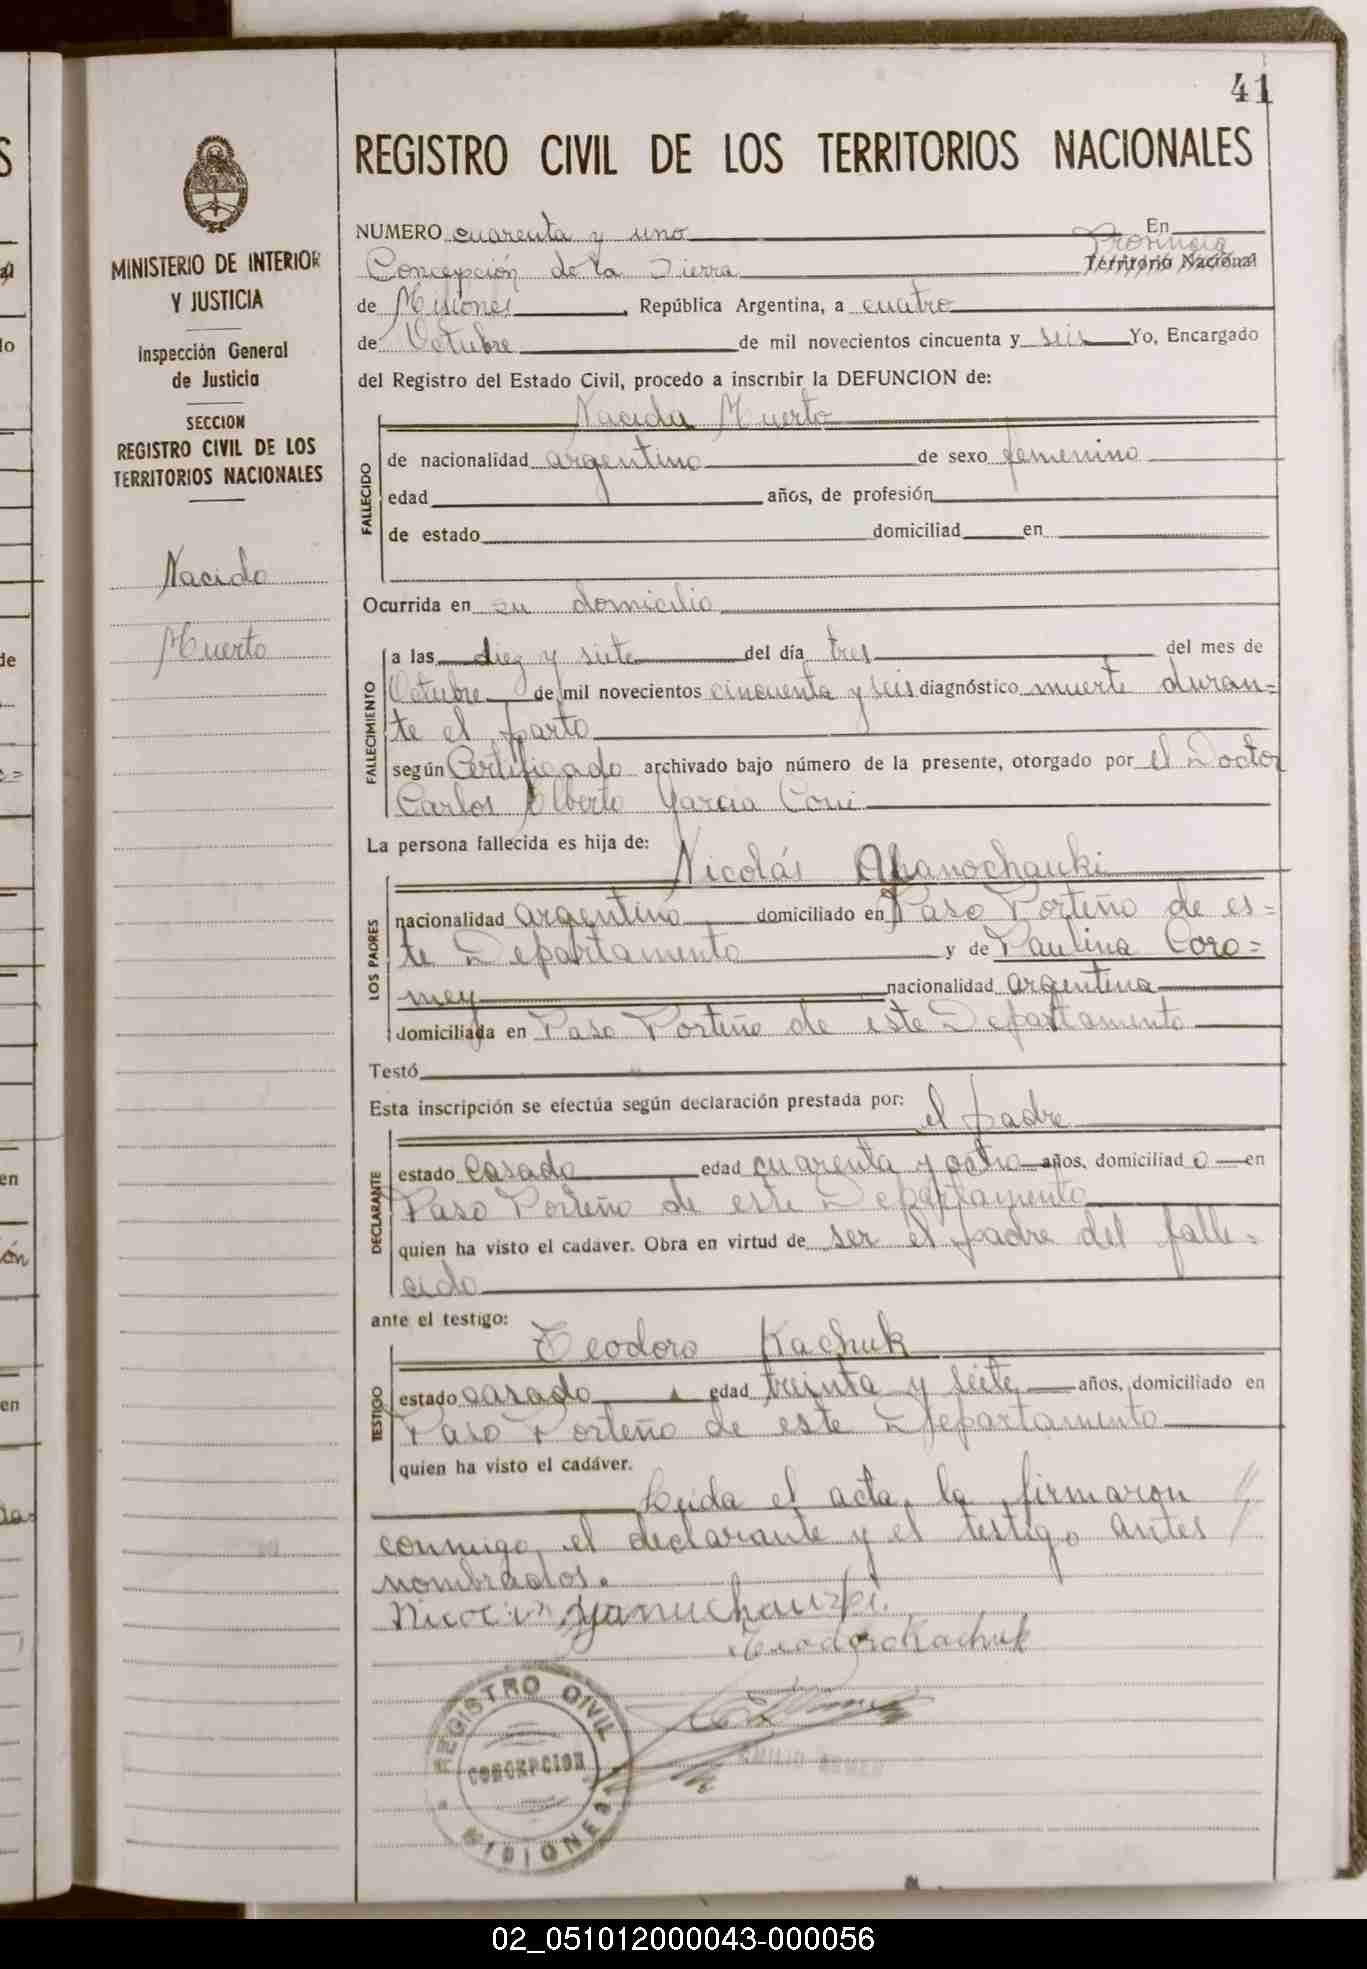 41
REGISTRO CIVIL DE LOS TERRITORIOS NACIONALES
MINISTERIO DE INTERIOR
Y JUSTICIA
Inspección General
de Justicia
SECCION
REGISTRO CIVIL DE LOS
TERRITORIOS NACIONALES
Nacido
Muerto
NUMERO cuarenta y uno En
Provincia
Concepción de la Sierra Territorio Nacional
de Misiones, República Argentina, a cuatro
de Octubre de mil novecientos cincuenta y seis Yo, Encargado
del Registro del Estado Civil, procedo a inscribir la DEFUNCION de:
Nacido Muerto
FALLECIDO
de nacionalidad argentino de sexo femenino
edad años, de profesión
de estado domiciliad en
Ocurrida en su domicilio
FALLECIMIENTO
a las diez y siete del día tres del mes de
Octubre de mil novecientos cincuenta y seis diagnóstico muerte duran=
te el parto
según Certificado archivado bajo número de la presente, otorgado por el Doctor
Carlos Alberto García Coni
La persona fallecida es hija de:
LOS PADRES
Nicolás
nacionalidad argentino domiciliado en Paso Porteño de es=
te Departamento y de Paulina Coro=
mey nacionalidad argentina
domiciliada en Paso Porteño de este Departamento
Testó
Esta inscripción se efectúa según declaración prestada por: el padre
DECLARANTE
estado casado edad cuarenta y octro años, domiciliad o en
Paso Porteño de este Departamento
quien ha visto el cadáver. Obra en virtud de ser el padre del falle=
cido
ante el testigo:
Teodoro Kachuk
TESTIGO
estado casado edad treinta y seite años, domiciliado en
Paso Porteño de este Departamento
quien ha visto el cadáver.
Leida el acta, la firmaron
conmigo, el declarante y el testigo antes
nombrados.
Teodoro Kachuk
REGISTRO CIVIL
CONCEPCION
MISIONES
EMILIO
02_051012000043-000056